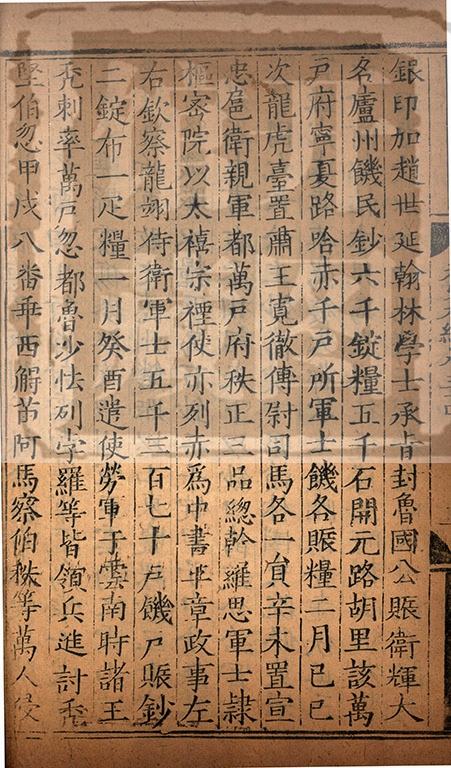 銀印加趙世延翰林學士承旨封魯國公賑衛輝大
名廬州饑民鈔六千錠糧五千石開元路胡里該萬
戸府寧夏路哈赤千戸所軍士饑各賑糧二月己巳
次龍虎臺置肅王寛徹傳尉司馬各一員辛未置宣
忠扈衛親軍都萬戸府秩正三品總幹羅思軍士隸
樞密院以太禧宗禋使亦列赤爲中書平章政事左
右欽察龍翊侍衛軍士五千三百七十戸饑戸賑鈔
二錠布一疋糧一月癸酉遣使勞軍于雲南時諸王
禿剌率萬戸忽都魯沙怯列孛羅等皆領兵進討禿
堅伯忽甲戌八番乖西苗阿馬察伯秩等萬人侵